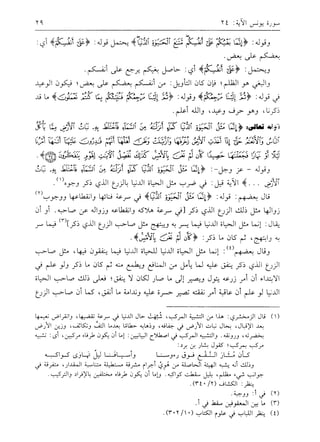 سورة يونس الآية: ٢٤
٢٩
وقوله: ﴿إِنَّمَا بَغْيُكُمْ عَلَىٰ أَنفُسِكُم مَّتَاعَ الْحَيَاةِ الدُّنْيَا﴾ يحتمل قوله: ﴿عَلَىٰ أَنفُسِكُم﴾ أي:
بعضكم على بعض.
ويحتمل: ﴿عَلَىٰ أَنفُسِكُم﴾ أي: حاصل بغيكم يرجع على أنفسكم.
والبغي هو الظلم؛ فإن كان التأويل: من أنفسكم بعضكم على بعض؛ فيكون الوعيد
في قوله: ﴿ثُمَّ إِلَيْنَا مَرْجِعُكُمْ﴾ وقوله: ﴿ثُمَّ إِلَيْنَا مَرْجِعُكُمْ فَنُنَبِّئُكُم بِمَا كُنتُمْ تَعْمَلُونَ﴾ ما قد
ذكرنا، وهو حرف وعيد، والله أعلم.
قوله تعالى: ﴿إِنَّمَا مَثَلُ الْحَيَاةِ الدُّنْيَا كَمَاءٍ أَنزَلْنَاهُ مِنَ السَّمَاءِ فَاخْتَلَطَ بِهِ نَبَاتُ الْأَرْضِ مِمَّا يَأْكُلُ
النَّاسُ وَالْأَنْعَامُ حَتَّىٰ إِذَا أَخَذَتِ الْأَرْضُ زُخْرُفَهَا وَازَّيَّنَتْ وَظَنَّ أَهْلُهَا أَنَّهُمْ قَادِرُونَ عَلَيْهَا أَتَاهَا أَمْرُنَا
لَيْلًا أَوْ نَهَارًا فَجَعَلْنَاهَا حَصِيدًا كَأَن لَّمْ تَغْنَ بِالْأَمْسِ كَذَٰلِكَ نُفَصِّلُ الْآيَاتِ لِقَوْمٍ يَتَفَكَّرُونَ﴾.
وقوله - عز وجل -: ﴿إِنَّمَا مَثَلُ الْحَيَاةِ الدُّنْيَا كَمَاءٍ أَنزَلْنَاهُ مِنَ السَّمَاءِ فَاخْتَلَطَ بِهِ نَبَاتُ
الْأَرْضِ ...﴾ الآية قيل: في ضرب مثل الحياة الدنيا بالزرع الذي ذكر وجوه(١).
قال بعضهم: قوله: ﴿إِنَّمَا مَثَلُ الْحَيَاةِ الدُّنْيَا﴾ في سرعة فنائها وانقطاعها ووجوب(٢)
زوالها مثل ذلك الزرع الذي ذكر [في سرعة هلاكه وانقطاعه وزواله عن صاحبه. أو أن
يقال: إنما مثل الحياة الدنيا فيما يسر به ويبتهج مثل صاحب الزرع الذي ذكر](٣) فيما سر
به وابتهج، ثم كان ما ذكر: ﴿كَأَن لَّمْ تَغْنَ بِالْأَمْسِ﴾.
وقال بعضهم(٤): إنما مثل الحياة الدنيا للحياة الدنيا فيما ينفقون فيها، مثل صاحب
الزرع الذي ذكر ينفق عليه لما يأمل من المنافع ويطمع منه ثم كان ما ذكر ولو علم في
الابتداء أن أمر زرعه يئول ويصير إلى ما صار لكان لا ينفق؛ فعلى ذلك صاحب الحياة
الدنيا لو علم أن عاقبة أمر نفقته تصير حسرة عليه وندامة ما أنفق، كما أن صاحب الزرع
(١) قال الزمخشري: هذا من التشبيه المركب، شُبِّهت حال الدنيا في سرعة تقضيها، وانقراض نعيمها
بعد الإقبال، بحال نبات الأرض في جفافه، وذهابه حطامًا بعدما التف وتكاثف، وزين الأرض
بخضرته، ورونقه. والتشبيه المركب في اصطلاح البيانيين: إما أن يكون طرفاه مركبين، أي: تشبيه
مركب بمركب؛ كقول بشار بن برد:
كأن مثار النقع فوق رءوسنا وأسيافنا ليل تهاوى كواكبه
وذلك أنه يشبه الهيئة الحاصلة من هوي أجرام مشرقة مستطيلة متناسبة المقدار، متفرقة في
جوانب شيء مظلم، بليل سقطت كواكبه. وإما أن يكون طرفاه مختلفين بالإفراد والتركيب.
ينظر: الكشاف (٢/٣٤٠).
(٢) في أ: ووجبة.
(٣) ما بين المعقوفين سقط في أ.
(٤) ينظر اللباب في علوم الكتاب (١٠/٣٠٢)